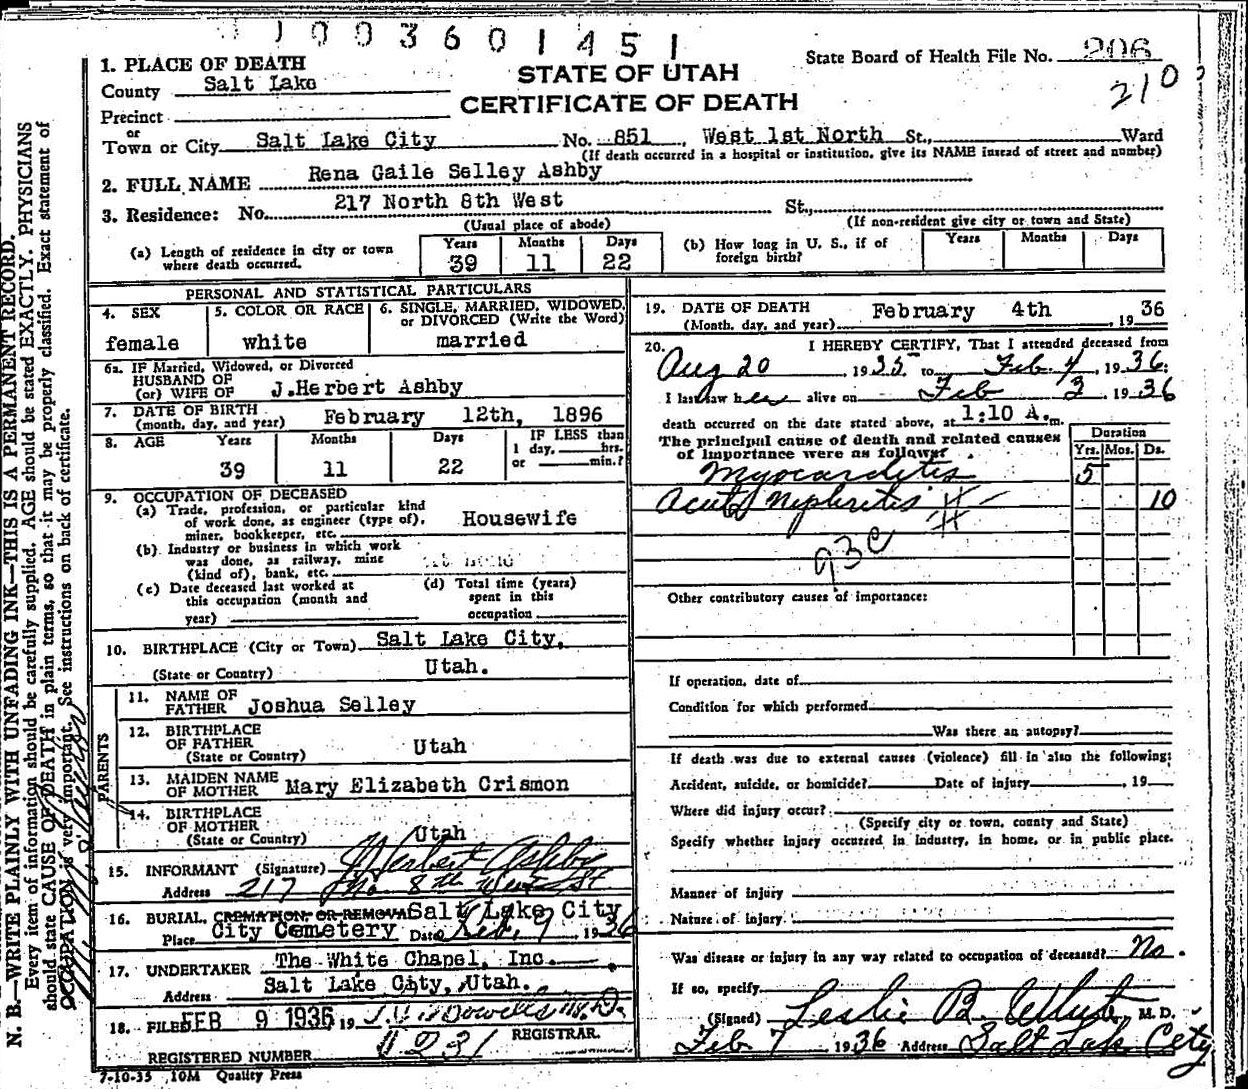 1003601451
State Board of Health File No. 206
210
1. PLACE OF DEATH
County Salt Lake
STATE OF UTAH
CERTIFICATE OF DEATH
Precinct
or
Town or City Salt Lake City No. 851, West 1st North St., Ward
(If death occurred in a hospital or institution, give its NAME insead of street and number)
2. FULL NAME Rena Gaile Selley Ashby
3. Residence: No. 217 North 8th West St.,
(Usual place of abode) (If non-resident give city or town and State)
(a) Length of residence in city or town where death occurred. Years 39 Months 11 Days 22
(b) How long in U. S., if of foreign birth? Years Months Days
PERSONAL AND STATISTICAL PARTICULARS
4. SEX 5. COLOR OR RACE 6. SINGLE, MARRIED, WIDOWED, or DIVORCED (Write the Word)
female white married
6a. IF Married, Widowed, or Divorced
HUSBAND OF
(or) WIFE OF J.Herbert Ashby
7. DATE OF BIRTH
(month, day, and year) February 12th, 1896
8. AGE Years Months Days IF LESS than
1 day, hrs.
or min.?
39 11 22
9. OCCUPATION OF DECEASED
(a) Trade, profession, or particular kind
of work done, as engineer (type of),
miner, bookkeeper, etc. Housewife
(b) Industry or business in which work
was done, as railway, mine
(kind of), bank, etc.
(c) Date deceased last worked at
this occupation (month and
year)
(d) Total time (years)
spent in this
occupation
10. BIRTHPLACE (City or Town) Salt Lake City,
(State or Country) Utah.
PARENTS
11. NAME OF
FATHER Joshua Selley
12. BIRTHPLACE
OF FATHER Utah
(State or Country)
13. MAIDEN NAME
OF MOTHER Mary Elizabeth Crismon
14. BIRTHPLACE
OF MOTHER
(State or Country) Utah
15. INFORMANT (Signature) J Herbert Ashby
Address 217 No. 8th West St
16. BURIAL, CREMATION, OR REMOVAL Salt Lake City
Place City Cemetery Date Feb. 9 1936
17. UNDERTAKER The White Chapel, Inc.
Address Salt Lake City, Utah.
18. FILED FEB 9 1936 19
REGISTRAR.
REGISTERED NUMBER 231
7-10-35 10M Quality Press
19. DATE OF DEATH
(Month, day, and year) February 4th, 1936
20. I HEREBY CERTIFY, That I attended deceased from
Aug 20 1935 to Feb 4, 1936;
I last saw her alive on Feb 3 1936
death occurred on the date stated above, at 1:10 A. m.
The principal cause of death and related causes
of importance were as follows:
Duration
Yrs. Mos. Ds.
Myocarditis 5
Acute Nephritis 10
93c
Other contributory causes of importance:
If operation, date of
Condition for which performed
Was there an autopsy?
If death was due to external causes (violence) fill in also the following:
Accident, suicide, or homicide? Date of injury , 19
Where did injury occur?
(Specify city or town, county and State)
Specify whether injury occurred in industry, in home, or in public place.
Manner of injury
Nature of injury
Was disease or injury in any way related to occupation of deceased? No.
If so, specify
(Signed) Leslie B. M. D.
Feb 7 1936 Address Salt Lake City
N. B.—WRITE PLAINLY WITH UNFADING INK—THIS IS A PERMANENT RECORD.
Every item of information should be carefully supplied. AGE should be stated EXACTLY. PHYSICIANS
should state CAUSE OF DEATH in plain terms, so that it may be properly classified. Exact statement of
OCCUPATION is very important. See instructions on back of certificate.